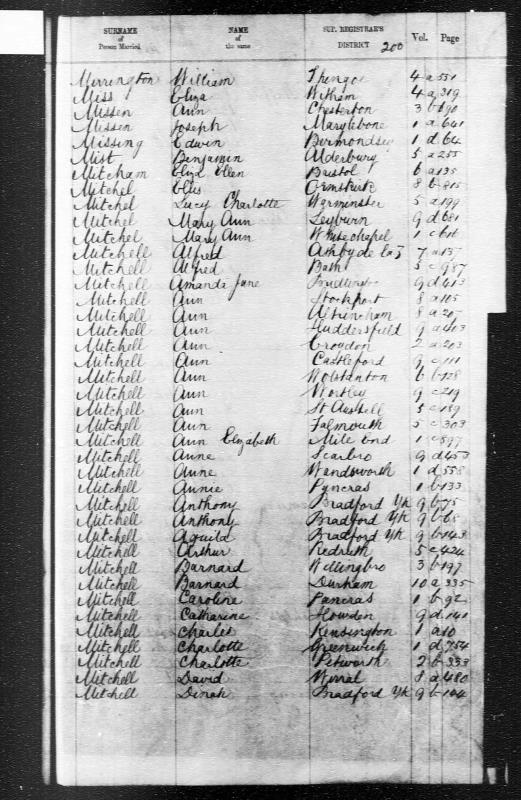 SURNAME of Person Married NAME of the same SUP. REGISTRAR'S DISTRICT 200 Vol. Page
Merrington William Thingoe 4 a 551
Miss Eliza Witham 4 a 319
Missen Ann Chesterton 3 b 890
Missen Joseph Marylebone 1 a 641
Missing Edwin Bermondsey 1 d 64
Mist Benjamin Alderbury 5 a 255
Mitcham Eliza Ellen Bristol 6 a 135
Mitchel Elis Ormskirk 8 b 815
Mitchel Lucy Charlotte Warminster 5 a 199
Mitchel Mary Ann Leyburn 9 d 681
Mitchel Mary Ann Whitechapel 1 c 616
Mitchell Alfred Ashby de la Z 7 a 157
Mitchell Alfred Bath 5 c 987
Mitchell Amanda Jane Bridlington 9 d 413
Mitchell Ann Stockport 8 a 105
Mitchell Ann Altrincham 8 a 207
Mitchell Ann Huddersfield 9 a 403
Mitchell Ann Croydon 2 a 203
Mitchell Ann Castleford 9 c 111
Mitchell Ann Wolstanton 6 b 128
Mitchell Ann Wortley 9 c 219
Mitchell Ann St Austell 5 c 189
Mitchell Ann Falmouth 5 c 303
Mitchell Ann Elizabeth Mile End 1 c 897
Mitchell Anne Scarbro 9 d 453
Mitchell Anne Wandsworth 1 d 558
Mitchell Annie Pancras 1 b 133
Mitchell Anthony Bradford Yk 9 b 75
Mitchell Anthony Bradford Yk 9 b 68
Mitchell Aquila Bradford Yk 9 b 143
Mitchell Arthur Redruth 5 c 424
Mitchell Barnard Wellingbro 3 b 197
Mitchell Barnard Durham 10 a 335
Mitchell Caroline Pancras 1 b 92
Mitchell Catharine Howden 9 d 141
Mitchell Charles Kensington 1 a 10
Mitchell Charlotte Greenwich 1 d 754
Mitchell Charlotte Petworth 2 b 333
Mitchell David Wirral 8 a 480
Mitchell Dinah Bradford Yk 9 b 104